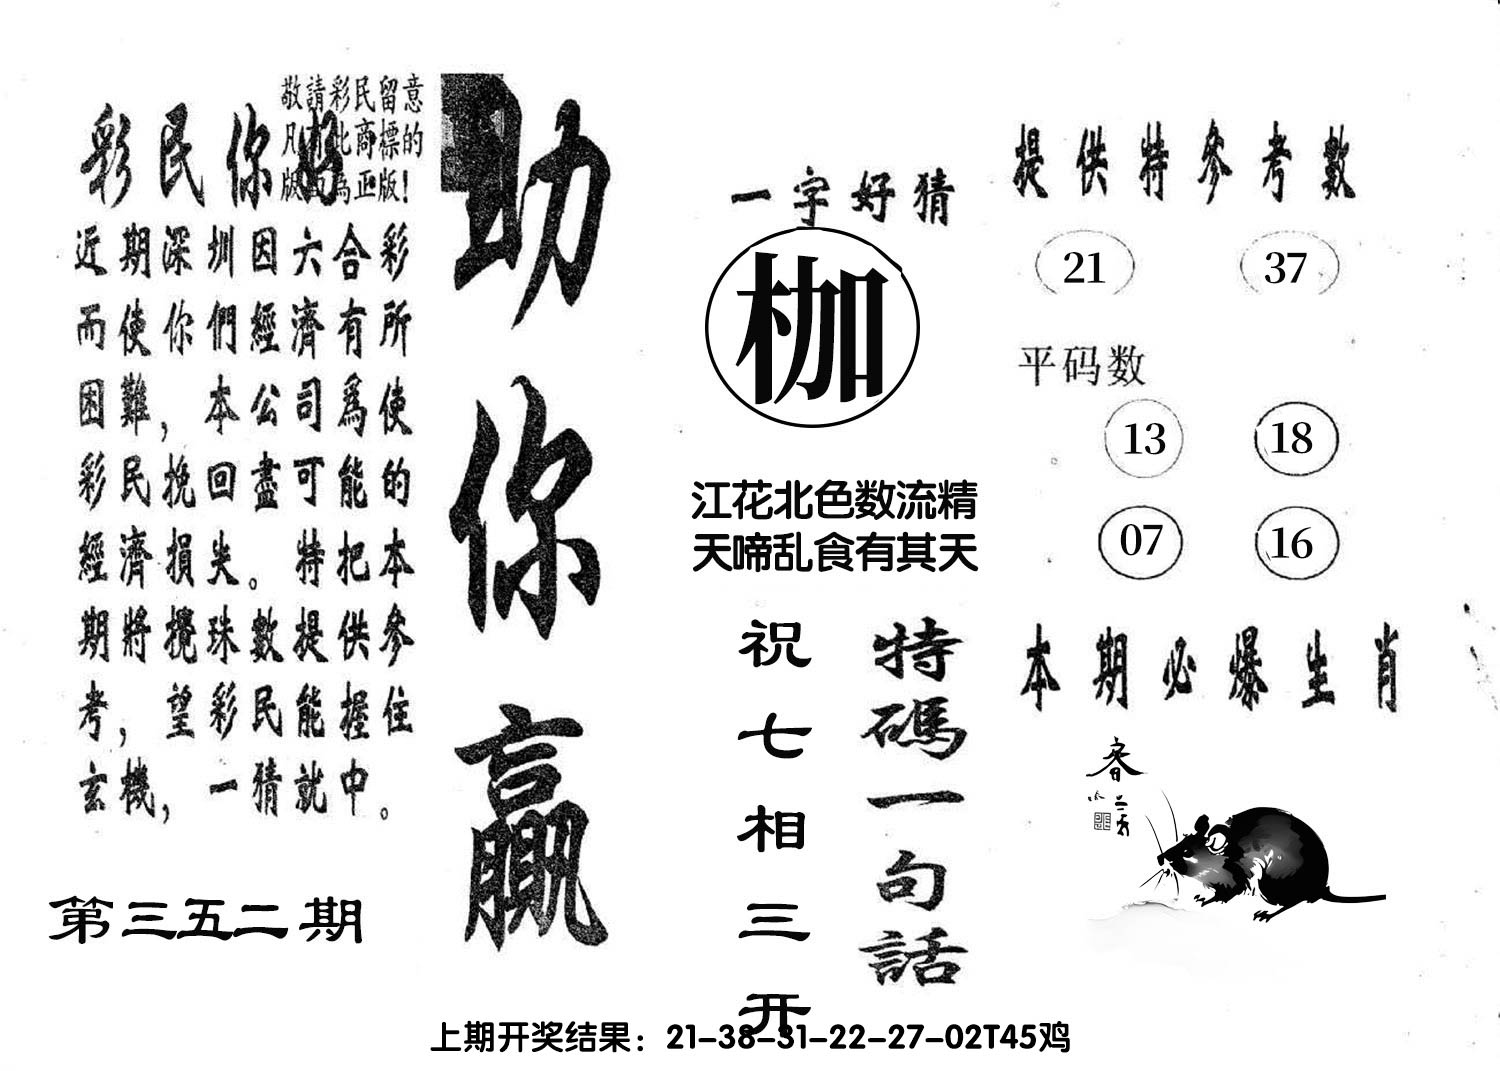 敬請彩民留意
凡有北商標的
版面為正版！
彩民你好
近期深圳因六合彩
而使你們經濟有所
困難，本公司爲使
彩民挽回盡可能的
經濟損失。特把本
期將攪珠數提供參
考，望彩民能握住
玄機，一猜就中。
第三五二期
助你赢
一字好猜
枷
江花北色数流精
天啼乱食有其天
特碼一句話
祝七相三开
提供特參考數
21 37
平码数
13 18
07 16
本期必爆生肖
上期开奖结果：21-38-31-22-27-02T45鸡